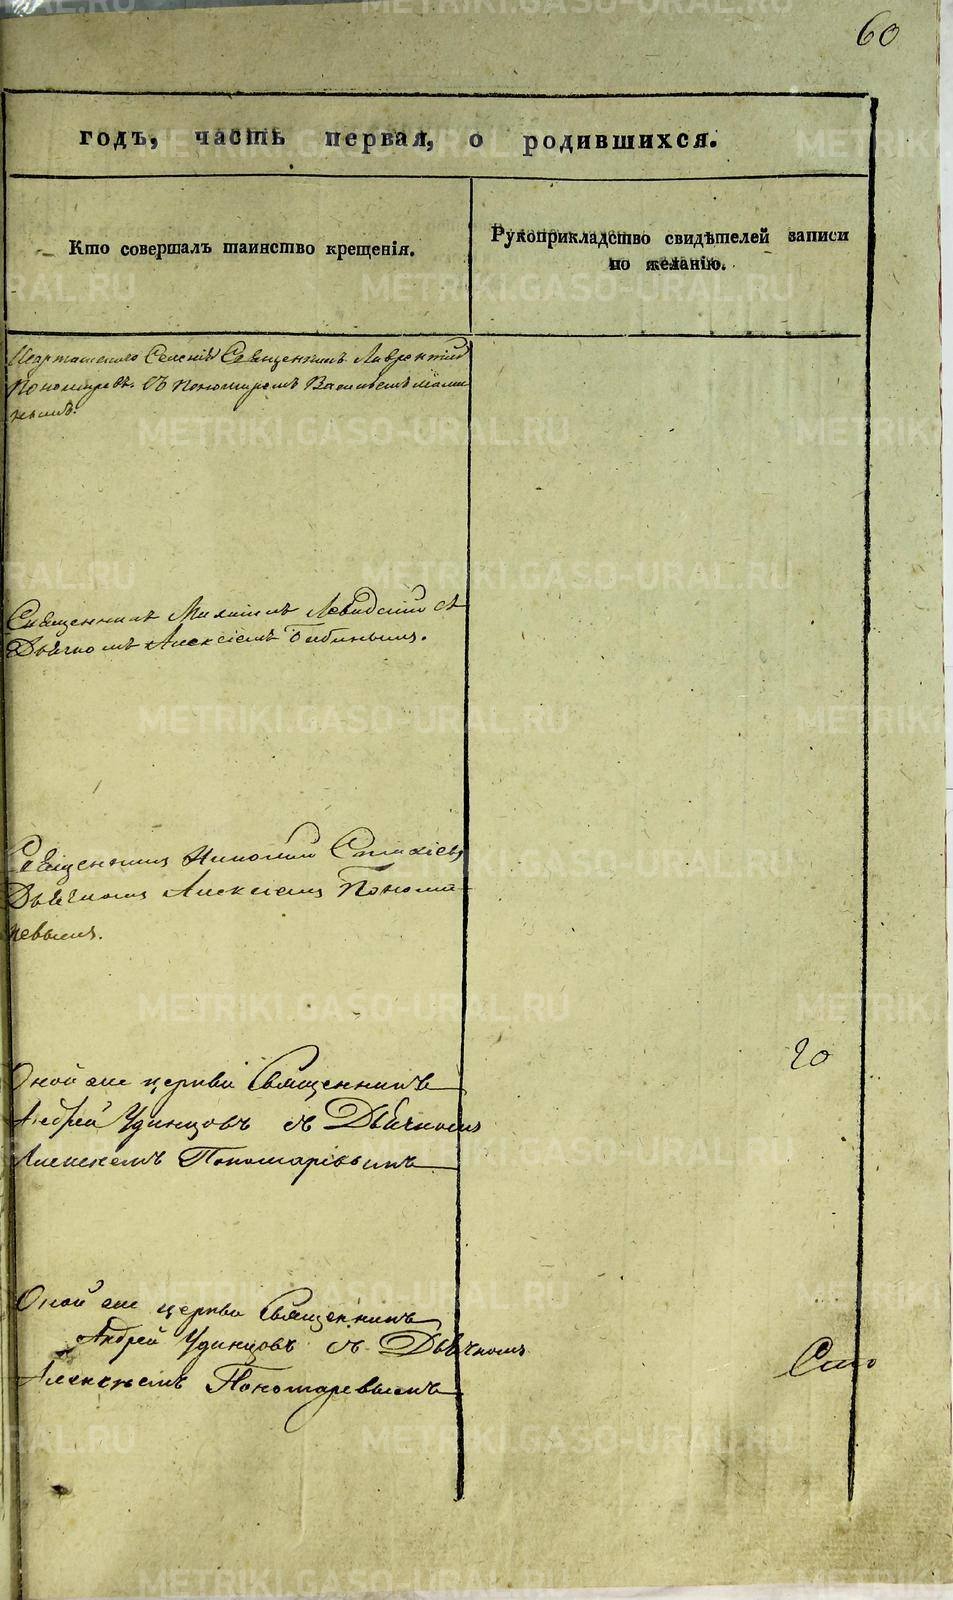 60
годъ, часть первая, о родившихся.
Кто совершалъ таинство крещенія.
Рукоприкладство свидѣтелей записи
по желанію.
Священникъ Лаврентій
Пономаревъ съ Пономаремъ
нымъ.
Священникъ Михаилъ Левидскій съ
Дьячкомъ Алексіемъ Бабинымъ.
Священникъ Николай
Дьячкомъ Алексіемъ Понома
ревымъ.
20
Оной же церкви Священникъ
Андрей Удинцовъ съ Дьячкомъ
Алексѣемъ Пономаревымъ
Оной же церкви Священникъ
Андрей Удинцовъ съ Дьячкомъ
Сто
Алексѣемъ Пономаревымъ
METRIKI.GASO-URAL.RU